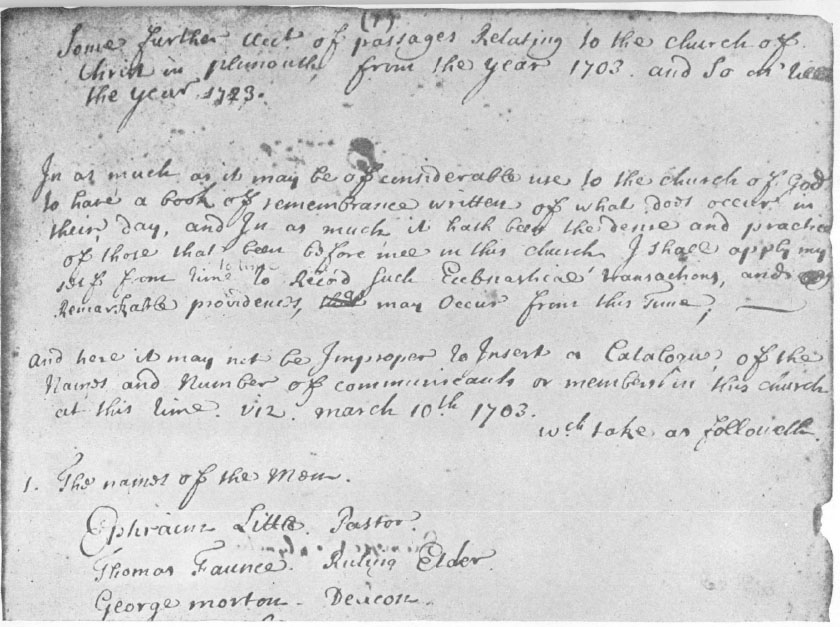 (1)
Some further acct of passages Relating to the church of
Christ in plimouth, from the year 1703. and So on till
the year 1723.
In as much as it may be of considerable use to the church of God
to have a book of remembrance written of what does occur in
their day, and In as much it hath been the desire and practice
of those that been before mee in this church I shall apply my
self from time to time to Record such Ecclesiastical transactions, and
Remarkable providences, may Occur from this time;
And here it may not be Improper to Insert a Catalogue, of the
Names and Number of communicants or members in this church
at this time. viz. march 10th 1703.
wch take as followeth.
1. The names of the Men.
Ephraim Little. Pastor,
Thomas Faunce. Ruling Elder.
George morton. Deacon.